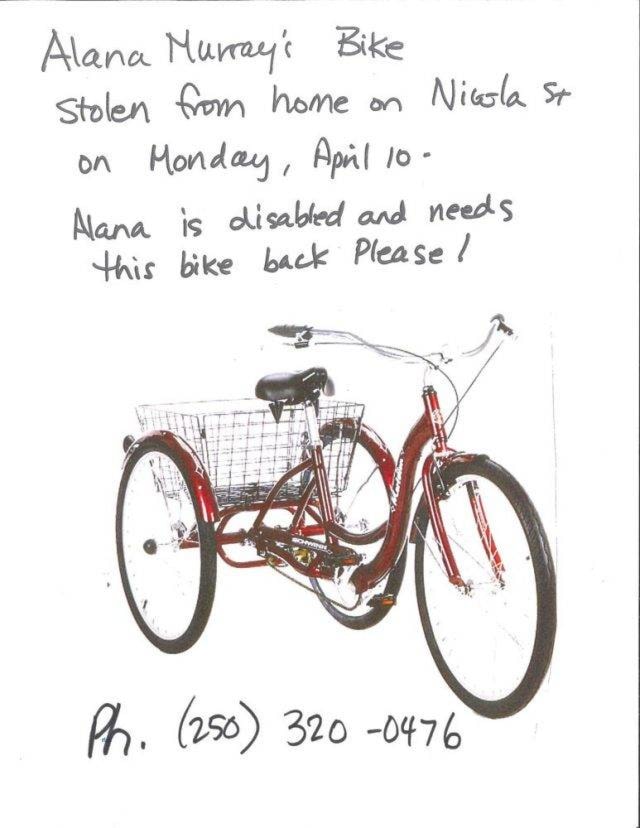 Alana Murray's Bike
Stolen from home on Nicola St
on Monday, April 10.
Alana is disabled and needs
this bike back Please!
SCHWINN
Ph. (250) 320-0476